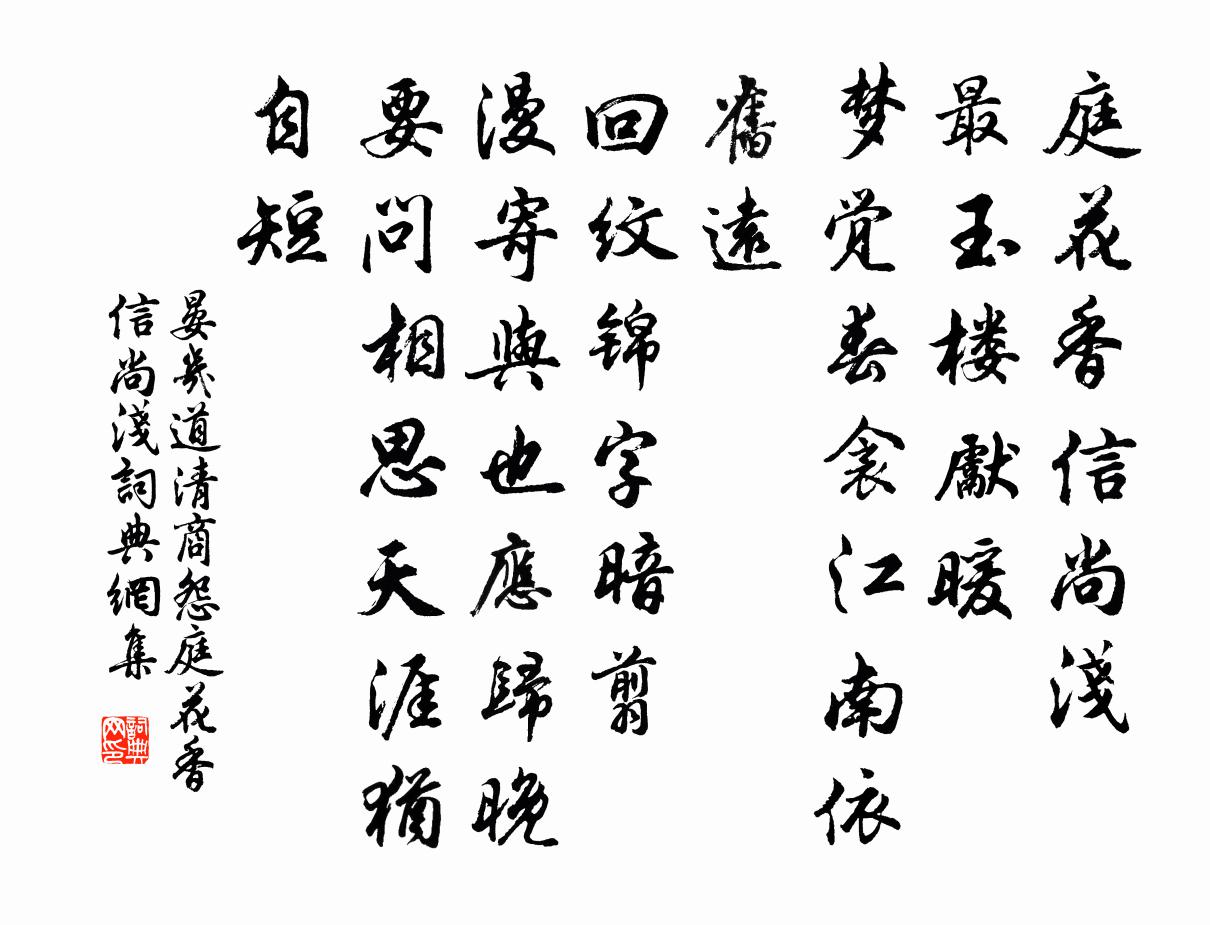 庭花香信尚淺
最玉楼獻暖
梦覚春衾江南依
舊遠
回纹锦字暗剪
漫寄與也應歸晚
要問相思天涯猶
自短
晏幾道清商怨庭花香
信尚淺詞典網集
詞典
网印